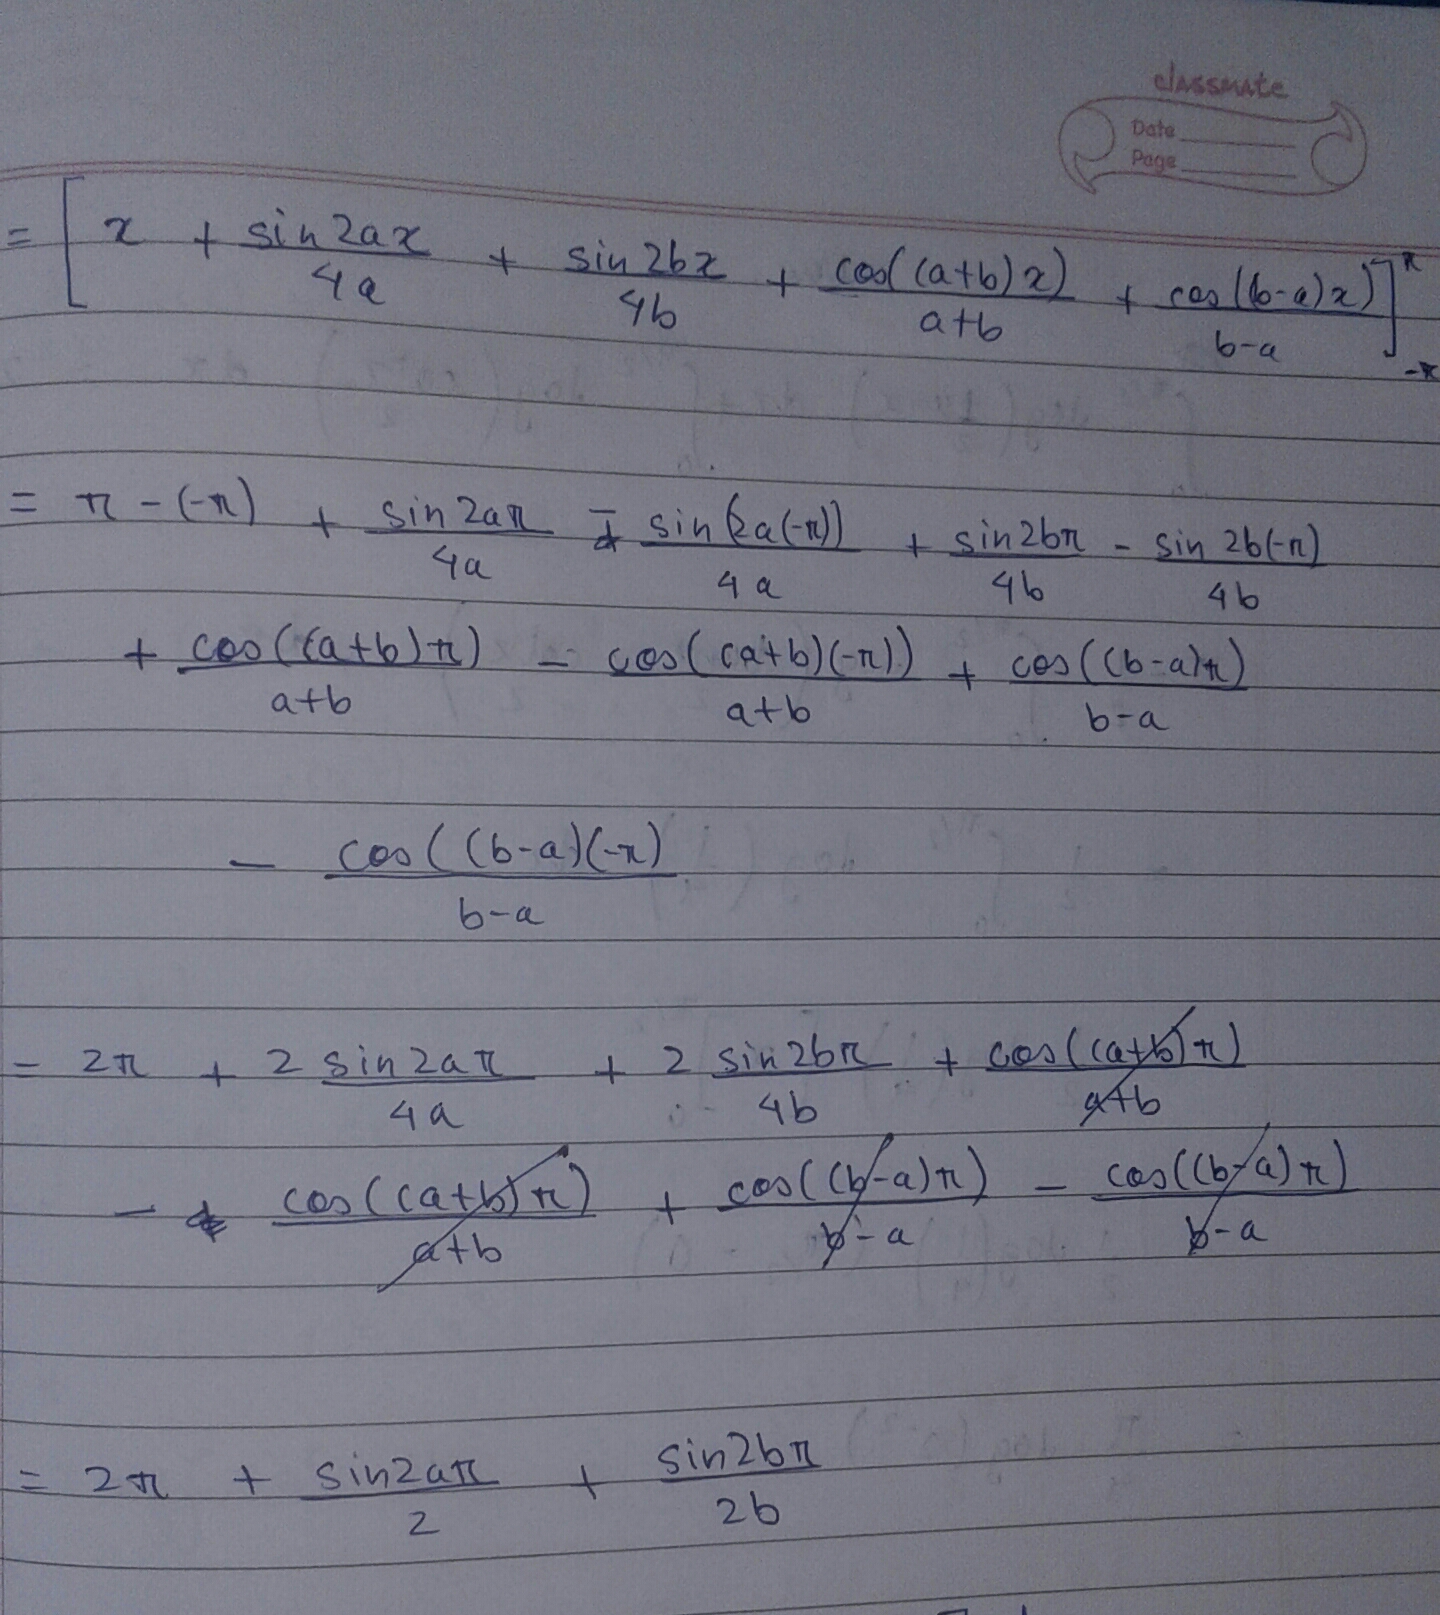 classmate
Date
Page
= [ x + sin2ax/4a + sin2bx/4b + cos((a+b)x)/a+b + cos((b-a)x)/b-a ]^π_-π
= π - (-π) + sin2aπ/4a - sin(2a(-π))/4a + sin2bπ/4b - sin 2b(-π)/4b
+ cos((a+b)π)/a+b - cos((a+b)(-π))/a+b + cos((b-a)π)/b-a
- cos((b-a)(-π)/b-a
= 2π + 2 sin2aπ/4a + 2 sin2bπ/4b + cos((a+b)π)/a+b
- cos((a+b)π)/a+b + cos((b-a)π)/b-a - cos((b-a)π)/b-a
= 2π + sin2aπ/2 + sin2bπ/2b